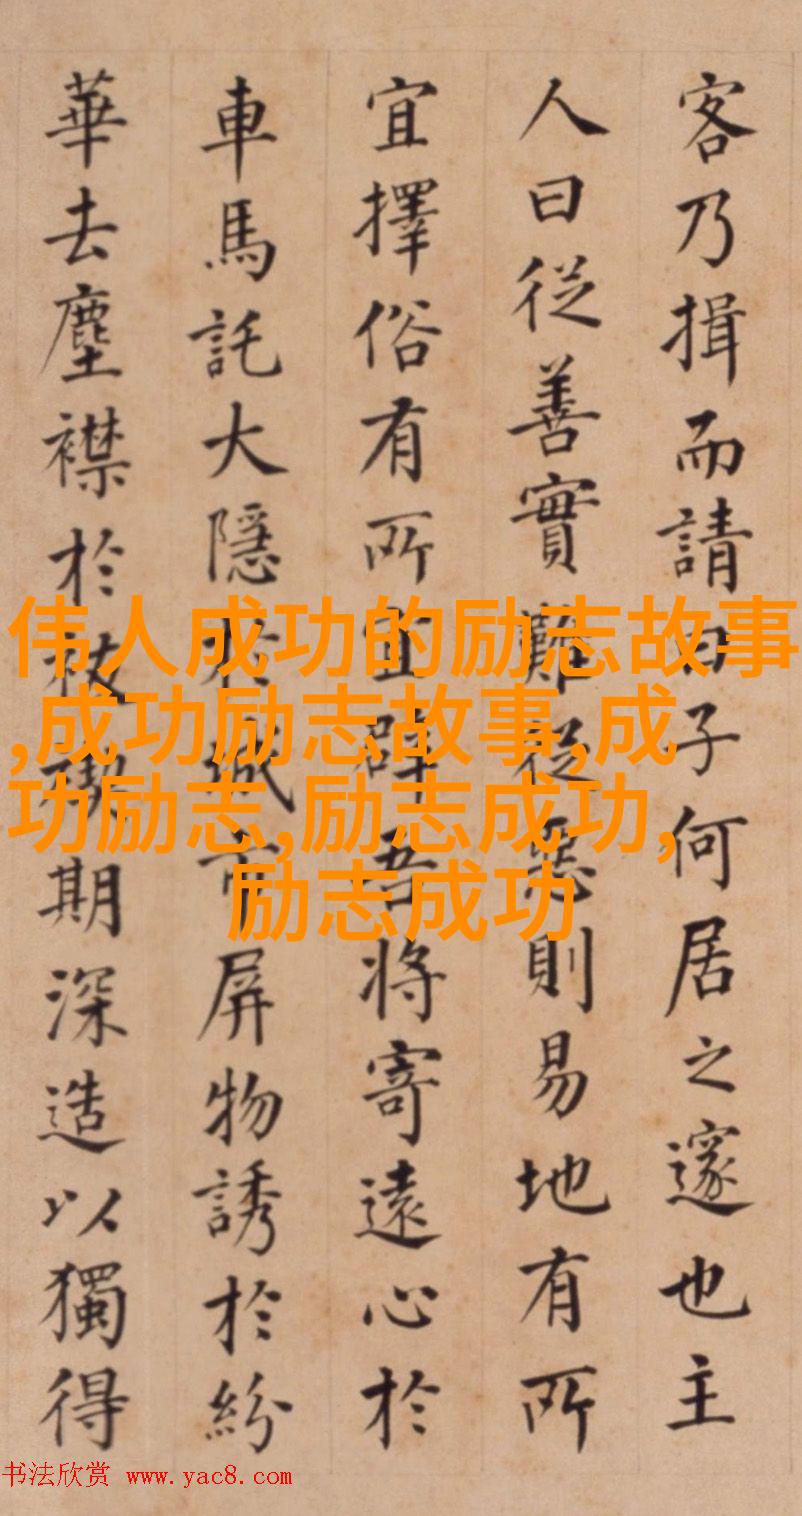 客乃揖而請曰子何居之邃也主
人曰從善實難從惡則易地有所
宜擇俗有所宜辟吾将寄遠心於
車馬託大隱於城市屏物誘於紛
華去塵襟於祓禊期深造以獨得
伟人成功的励志故事
,成功励志故事,成
功励志,励志成功,
励志成功
书法欣赏 www.yac8.com